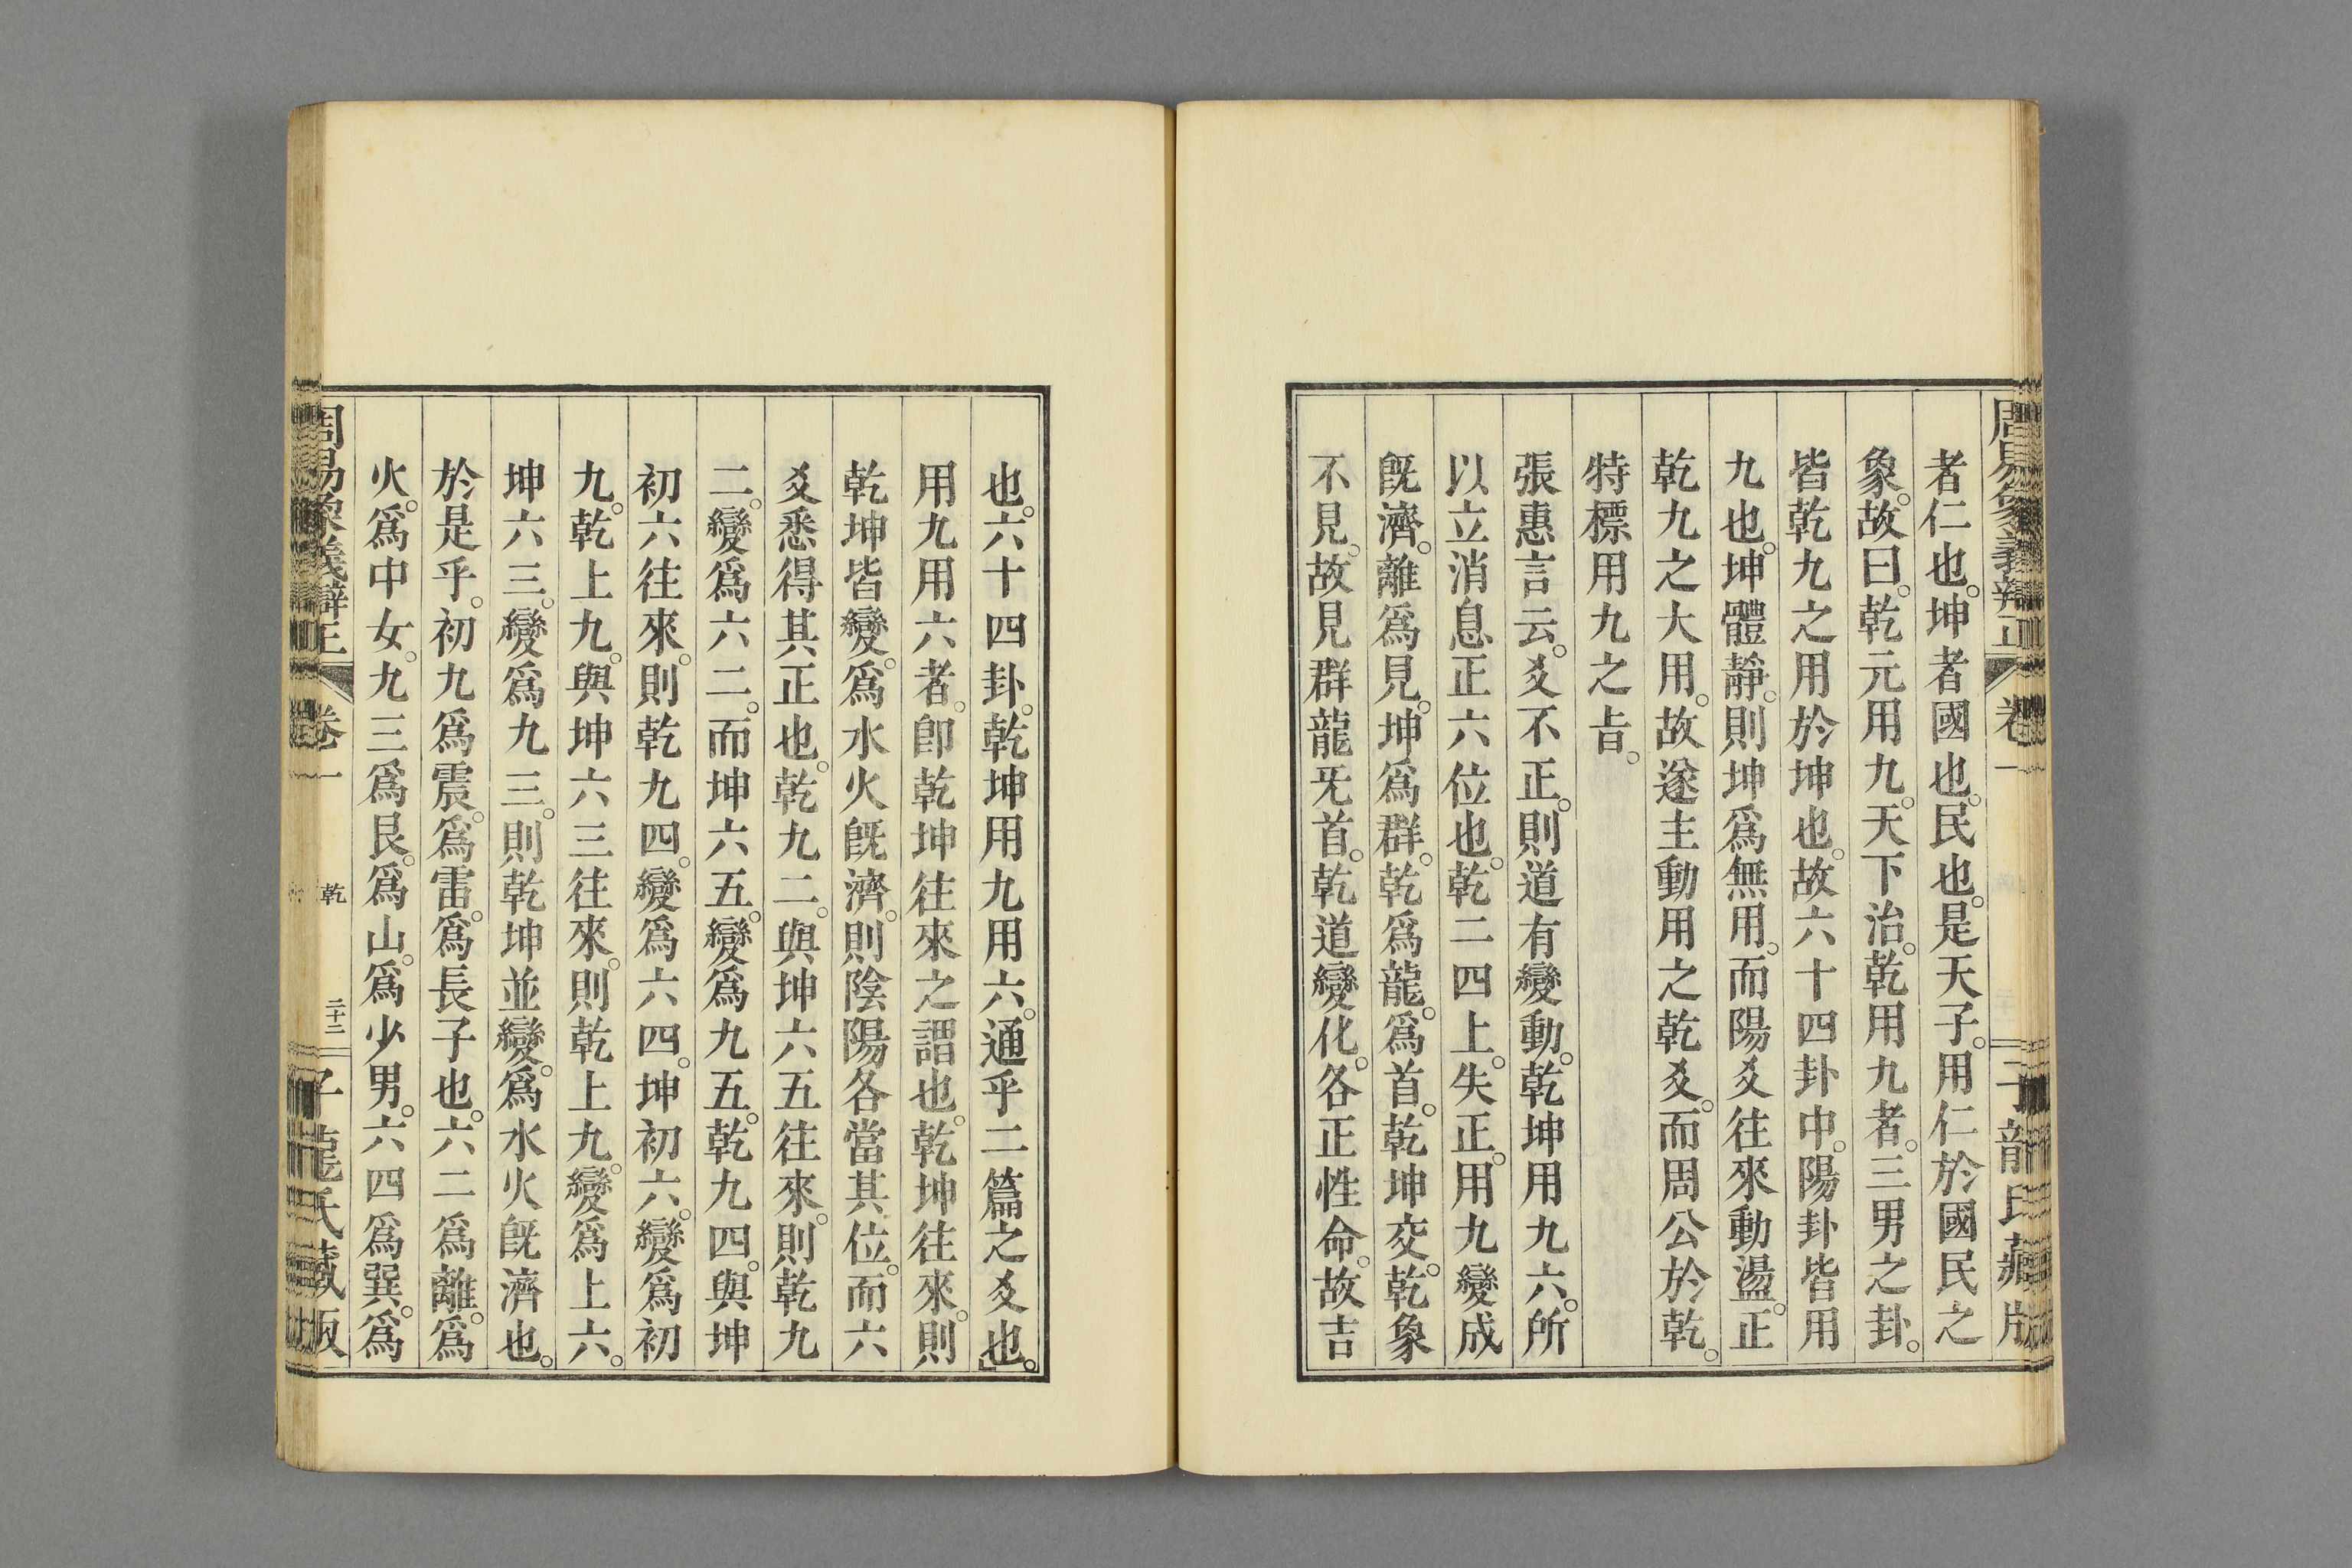 周易象義辯正　卷一　子龍氏藏版
者仁也。坤者國也。民也。是天子。用仁於國民之
象。故曰。乾元用九。天下治。乾用九者。三男之卦。
皆乾九之用於坤也。故六十四卦中。陽卦皆用
九也。坤體靜。則坤爲無用。而陽爻往來動盪。正
乾九之大用。故遂主動用之乾爻。而周公於乾。
特標用九之㫖。
張惠言云。爻不正。則道有變動。乾坤用九六。所
以立消息正六位也。乾二四上。失正。用九變成
旣濟。離爲見。坤爲群。乾爲龍。爲首。乾坤交。乾象
不見。故見群龍旡首。乾道變化。各正性命。故吉
也。六十四卦。乾坤用九用六。通乎二篇之爻也。」
用九用六者。卽乾坤往來之謂也。乾坤往來。則
乾坤皆變。爲水火旣濟。則陰陽各當其位。而六
爻悉得其正也。乾九二。與坤六五往來。則乾九
二。變爲六二。而坤六五。變爲九五。乾九四。與坤
初六往來。則乾九四。變爲六四。坤初六。變爲初
九。乾上九。與坤六三往來。則乾上九。變爲上六。
坤六三。變爲九三。則乾坤並變。爲水火旣濟也。
於是乎。初九爲震。爲雷。爲長子也。六二爲離。爲
火。爲中女。九三爲艮。爲山。爲少男。六四爲巽。爲
周易象義辯正　卷一　乾　二十二　子龍氏藏版